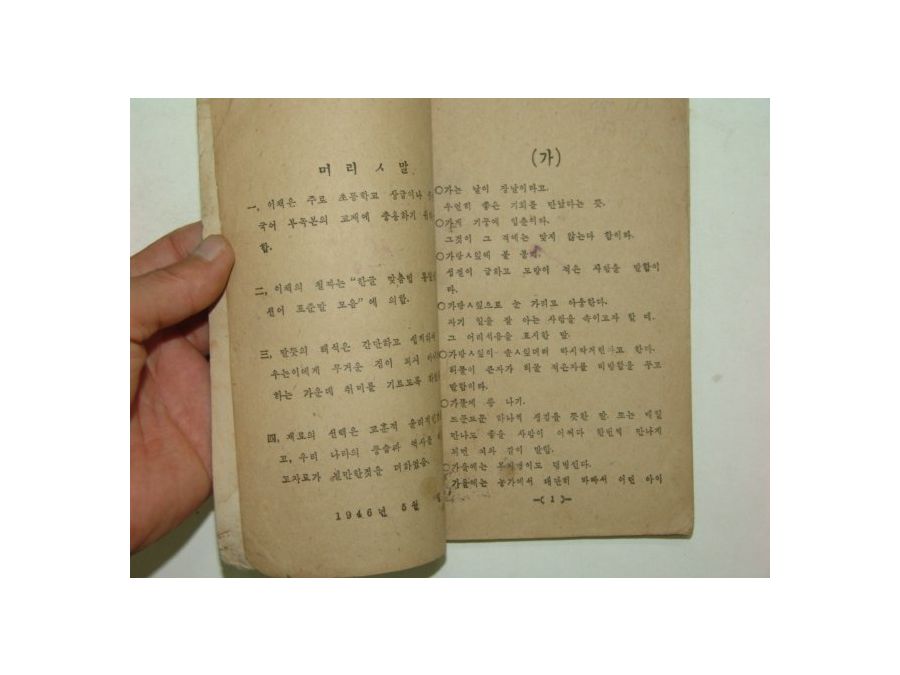 머 리 ㅅ 말
一, 이책은 주로 초등학교 상급이나
국어 부독본의 교재에 충용하기
함.
二, 이책의 철자는 "한글 맞춤법 통일
준어 표준말 모음"에 의함.
三, 말뜻의 해석은 간단하고
우는이에게 무거운 짐이 되지
하는 가운데 취미를 기르도록
四, 재료의 선택은 교훈적 윤리적
고, 우리 나라의 풍습과 역사를
고자료가 될만한것을 더하였음.
1946년 5월
(가)
○가는 날이 장날이라고.
우연히 좋은 기회를 만났다는 뜻.
○가게 기둥에 입춘이라.
그것이 그 격에는 맞지 않는다 함이라.
○가랑ㅅ잎에 불 붙기.
성질이 급하고 도량이 적은 사람을 말함이
라.
○가랑ㅅ잎으로 눈 가리고 아웅한다.
자기 일을 잘 아는 사람을 속이고자 할 때.
그 어리석음을 표시한 말.
○가랑ㅅ잎이 솔ㅅ잎더러 바시락거린다고 한다.
허물이 큰자가 허물 적은자를 비방함을 두고
말함이라.
○가물에 콩 나기.
드문드문 하나씩 생김을 뜻한 말. 또는 매일
만나도 좋을 사람이 어쩌다 한번씩 만나게
되면 이와 같이 말함.
○가을에는 부지깽이도 덤벙인다.
가을에는 농가에서 대단히 바빠서 어린 아이
―( 1 )―